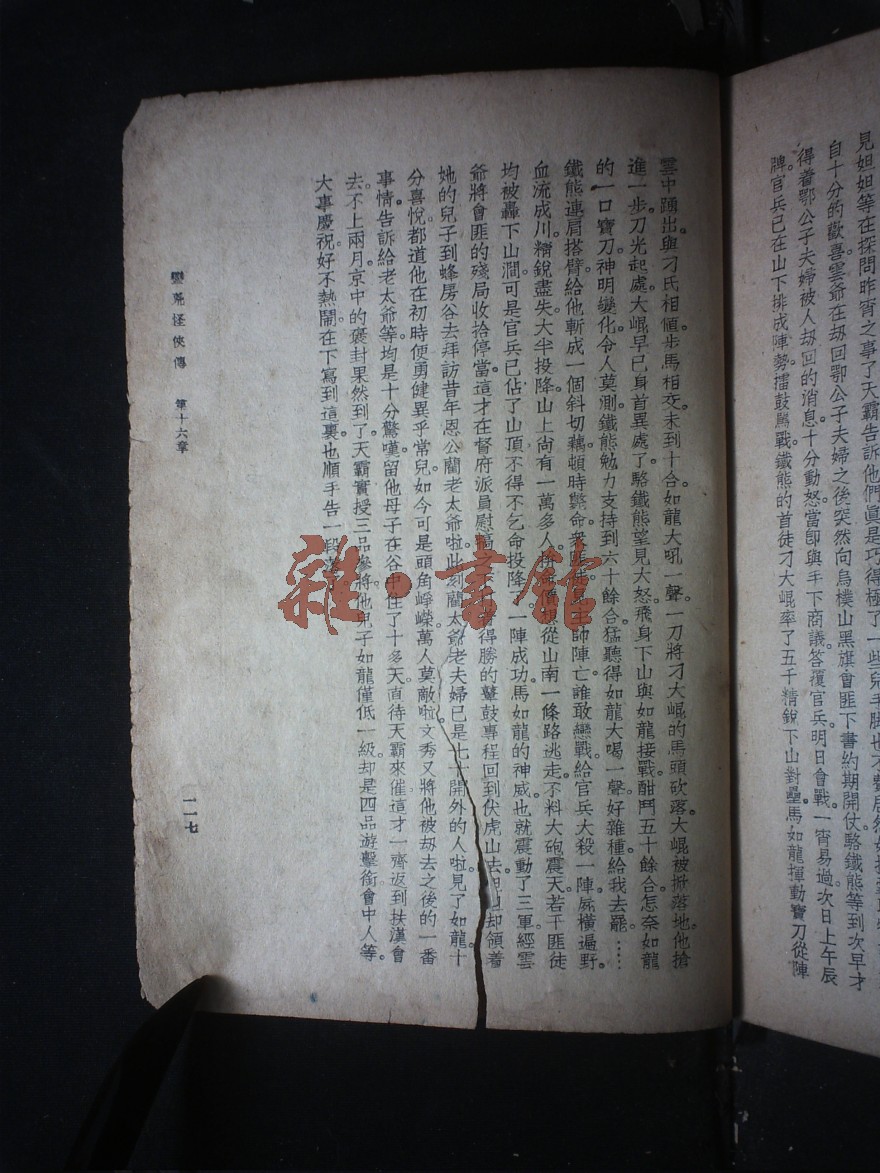 見妲妲等在探問昨宵之事了天霸告訴他們眞是巧得極了一些兒手脚也不
自十分的歡喜雲爺在刼回鄂公子夫婦之後突然向烏樸山黑旗會匪下書約期開仗駱鐵熊等到次早才
得着鄂公子夫婦被人刼回的消息。十分動怒當卽與手下商議答覆官兵明日會戰。一宵易過次日上午辰
牌官兵已在山下排成陣勢擂鼓罵戰鐵熊的首徒刁大崐率了五千精銳下山對壘馬如龍揮動寶刀從陣
雲中踴出。與刁氏相値步馬相交未到十合如龍大吼一聲。一刀將刁大崐的馬頭砍落。大崐被掀落地他搶
進一步刀光起處大崐早已身首異處了。駱鐵熊望見大怒。飛身下山與如龍接戰。酣鬥五十餘合怎奈如龍
的一口寶刀神明變化令人莫測鐵熊勉力支持到六十餘合猛聽得如龍大喝一聲。好雜種給我去罷。……
鐵熊連肩搭臂給他斬成一個斜切藕頓時斃命衆 主帥陣亡誰敢戀戰給官兵大殺一陣。屍橫遍野。
血流成川。精銳盡失大半投降。山上尚有一萬多人 從山南一條路逃走。不料大砲震天。若干匪徒
均被轟下山澗。可是官兵已佔了山頂不得不乞命投降。一陣成功馬如龍的神威。也就震動了三軍經雲
爺將會匪的殘局收拾停當。這才在督府派員慰 得勝的鼙鼓專程回到伏虎山去。 却領着
她的兒子到蜂房谷去拜訪昔年恩公藺老太爺啦。此刻藺太爺老夫婦已是七十開外的人啦。見了如龍十
分喜悅。都道他在初時便勇健異乎常兒。如今可是頭角崢嶸萬人莫敵啦。文秀又將他被刼去之後的一番
事情。告訴給老太爺等。均是十分驚嘆留他母子在谷中住了十多天。直待天霸來催這才一齊返到扶漢會
去。不上兩月京中的褒封果然到了。天霸實授三品參將。他兒子如龍僅低一級。却是四品游擊銜會中人等。
大事慶祝。好不熱鬧。在下寫到這裏。也順手告一段落
蠻荒怪俠傳 第十六章
一一七
雜·書館